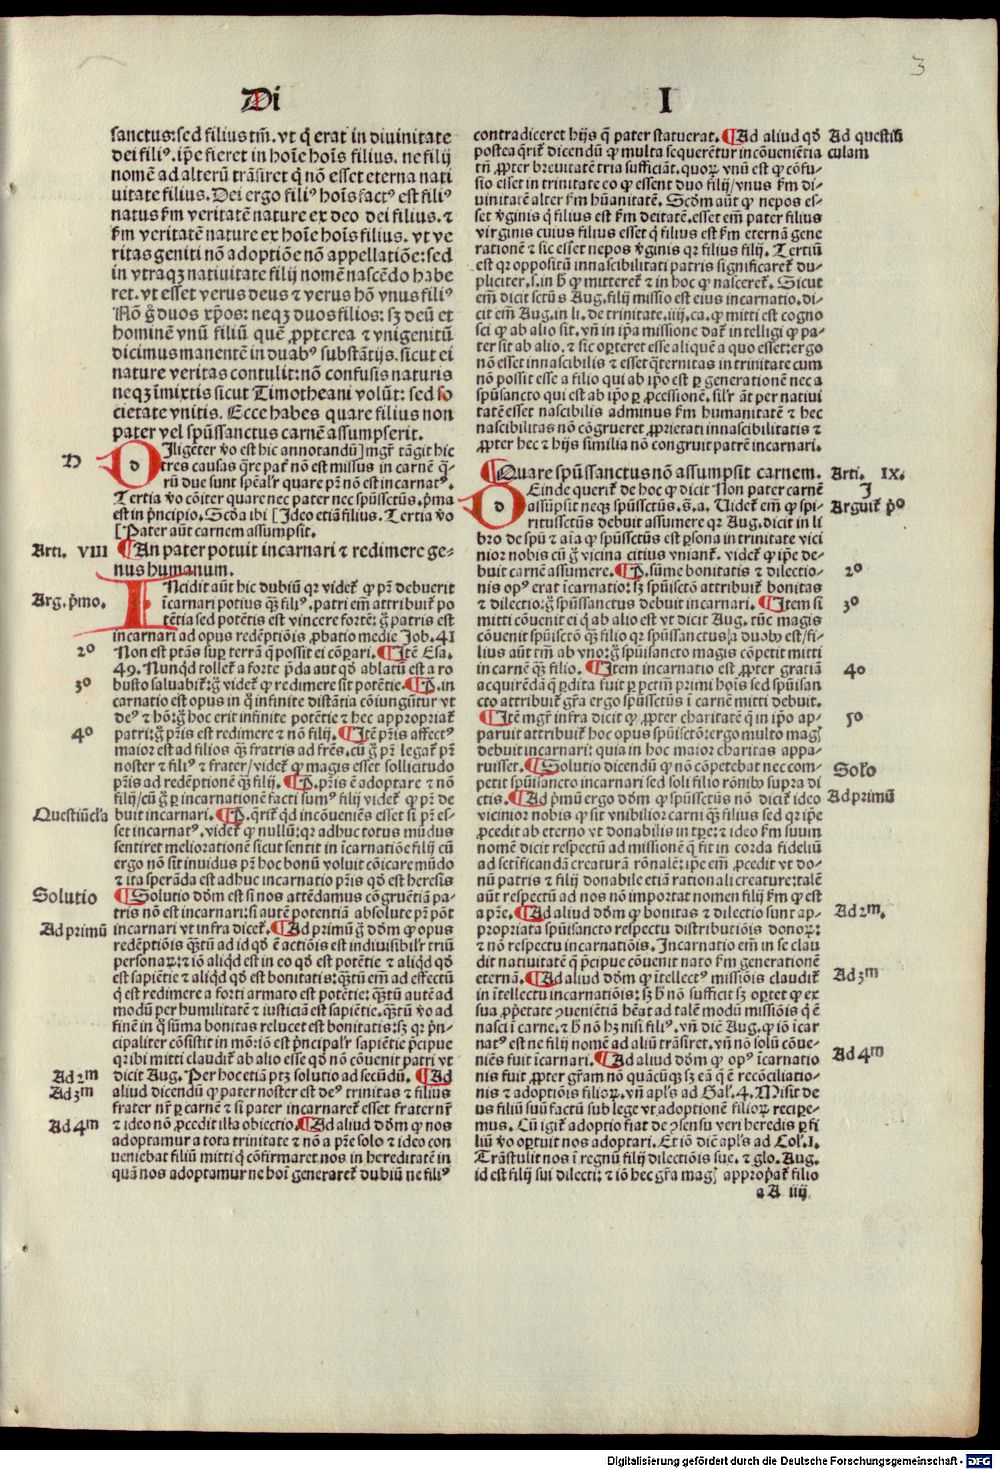 3
Di
I
sanctus: sed filius tm̄. vt q̄ erat in diuinitate
dei fili⁹. ip̄e fieret in hoīe hoīs filius. ne filij
nomē ad alterū trāsiret q̄ nō esset eterna nati
uitate filius. Dei ergo fili⁹ hoīs fact⁹ est fili⁹
natus ẜm veritatē nature ex deo dei filius. ⁊
ẜm veritatē nature ex hoīe hoīs filius. vt ve
ritas geniti nō adoptiōe nō appellatiōe: sed
in vtraqꝫ natiuitate filij nomē nascēdo habe
ret. vt esset verus deus ⁊ verus hō vnus fili⁹
Nō g̊ duos xp̄os: neqꝫ duos filios: sꝫ deū et
hominē vnū filiū quē ꝓpterea ⁊ vnigenitū
dicimus manentē in duab⁹ substātijs. sicut ei
nature veritas contulit: nō confusis naturis
neqꝫ īmixtis sicut Timotheani volūt: sed so
cietate vnitis. Ecce habes quare filius non
pater vel spūssanctus carnē assumpserit.
D
DIligēter v̊o est hic annotandū] mgr̄ tāgit hic
tres causas q̄re pat̄ nō est missus in carnē q̄-
rū due sunt spēal̄r quare pr̄ nō est incarnat⁹.
Tertia v̊o cōiter quare nec pater nec spūssctūs. p̄ma
est in p̄ncipio. Scd̄a ibi [Ideo etiā filius. Tertia v̊o
[Pater aūt carnem assumpsit.
Arti. VIII
¶An pater potuit incarnari ⁊ redimere ge-
nus humanum.
Arg. p̄mo.
INcidit aūt hic dubiū qꝛ videt̄ ꝙ pr̄ debuerit
īcarnari potius q̄ꝫ fili⁹. patri em̄ attribuit̄ po
tētia sed potētis est vincere fortē: g̊ patris est
incarnari ad opus redēptiōis ꝓbatio medie Job. 41
2⁰
Non est ptās suꝑ terrā q̄ possit ei cōꝑari. ¶Itē Esa.
49. Nunq̄d tollet̄ a forte p̄da aut qd̄ ablatū est a ro
3⁰
busto saluabit̄: g̊ videt̄ ꝙ redimere sit potētie. ¶P. in
carnatio est opus in q̊ infinite distātia cōiungūtur vt
de⁹ ⁊ hō: g̊ hoc erit infinite potētie ⁊ hec appropriat̄
4⁰
patri: g̊ pr̄is est redimere ⁊ nō filij. ¶Itē pr̄is affect⁹
maior est ad filios q̄ꝫ fratris ad frēs. cū g̊ pr̄ legat̄ pr̄
noster ⁊ fili⁹ ⁊ frater/ videt̄ ꝙ magis esset sollicitudo
pr̄is ad redēptionē q̄ꝫ filij. ¶P. pr̄is ē adoptare ⁊ nō
filij/ cū g̊ ꝑ incarnationē facti sum⁹ filij videt̄ ꝙ pr̄ de
Questiūcl̄a
buit incarnari. ¶P. q̄rit̄ qd̄ incōueniēs esset si pr̄ es-
set incarnat⁹. videt̄ ꝙ nullū: qꝛ adhuc totus mūdus
sentiret meliorationē sicut sentit in īcarnatiōe filij cū
ergo nō sit inuidus pr̄ hoc bonū voluit cōicare mūdo
⁊ ita sperāda est adhuc incarnatio pr̄is qd̄ est heresis
Solutio
¶Solutio dd̄m est si nos attēdamus cōgruētiā pa-
tris nō est incarnari: si autē potentiā absolute pr̄ pōt
Ad primū
incarnari vt infra dicet̄. ¶Ad primū g̊ dd̄m ꝙ opus
redēptiōis q̄ꝫtū ad id qd̄ ē actiōis est indiuisibil̄r triū
personaꝝ: ⁊ iō aliqd̄ est in eo qd̄ est potētie ⁊ aliqd̄ qd̄
est sapiētie ⁊ aliqd̄ qd̄ est bonitatis: q̄ꝫtū em̄ ad effectū
q̄ est redimere a forti armato est potētie: q̄ꝫtū autē ad
modū per humilitatē ⁊ iusticiā est sapiētie. q̄ꝫtū v̊o ad
finē in q̊ sūma bonitas relucet est bonitatis: sꝫ qꝛ p̄n-
cipaliter cōsistit in mō: iō est p̄ncipal̄r sapiētie p̄cipue
qꝛ ibi mitti claudit̄ ab alio esse qd̄ nō cōuenit patri vt
Ad 2m
dicit Aug. Per hoc etiā ptꝫ solutio ad secūdū. ¶Ad
Ad 3m
aliud dicendū ꝙ pater noster est de⁹ trinitas ⁊ filius
frater nr̄ ꝑ carnē ⁊ si pater incarnaret̄ esset frater nr̄
Ad 4m
⁊ ideo nō ꝓcedit illa obiectio. ¶Ad aliud dd̄m ꝙ nos
adoptamur a tota trinitate ⁊ nō a pr̄e solo ⁊ ideo con
ueniebat filiū mitti q̄ cōfirmaret nos in hereditatē in
quā nos adoptamur ne boī generaret̄ dubiū ne fili⁹
contradiceret hijs q̄ pater statuerat. ¶Ad aliud qd̄
Ad questiū
culam
postea q̄rit̄ dicendū ꝙ multa sequerētur incōueniētia
tn̄ ꝓpter breuitatē tria sufficiāt. quoꝝ vnū est ꝙ cōfu-
sio esset in trinitate eo ꝙ essent duo filij/ vnus ẜm di-
uinitatē alter ẜm hūanitatē. Scd̄m aūt ꝙ nepos es-
set v̄ginis q̄ filius est ẜm deitatē. esset em̄ pater filius
virginis cuius filius esset q̄ filius est ẜm eternā gene
rationē ⁊ sic esset nepos v̄ginis qꝛ filius filij. Tertiū
est qꝛ oppositū innascibilitati patris significaret̄ du-
pliciter. s. in h̊ ꝙ mitteret̄ ⁊ in hoc ꝙ nasceret̄. Sicut
em̄ dicit sctūs Aug. filij missio est eius incarnatio. di-
cit em̄ Aug. in li. de trinitate. iiij. ca. ꝙ mitti est cogno
sci ꝙ ab alio sit. vn̄ in ip̄a missione dat̄ intelligi ꝙ pa-
ter sit ab alio. ⁊ sic oꝑteret esse aliquē a quo esset: ergo
nō esset innascibilis ⁊ esset q̄ternitas in trinitate cum
nō possit esse a filio qui ab ip̄o est ꝑ generationē nec a
spūsancto qui est ab ip̄o ꝑ ꝓcessionē. sil̄r āt per natiui
tatē esset nascibilis adminus ẜm humanitatē ⁊ hec
nascibilitas nō cōgrueret ꝓprietati innascibilitatis ⁊
ꝓpter hec ⁊ hijs similia nō congruit patrē incarnari.
¶Quare spūssanctus nō assumpsit carnem.
Arti. IX.
1
DEinde querit̄ de hoc ꝙ dicit Non pater carnē
Arguit̄ p̊
assūpsit neqꝫ spūssctūs. s. a. Uidet̄ em̄ ꝙ spi-
ritussctūs debuit assumere qꝛ Aug. dicit in li
bro de spū ⁊ aīa ꝙ spūssctūs est ꝑsona in trinitate vici
nior nobis cū g̊ vicina citius vniant̄. videt̄ ꝙ ip̄e de-
2⁰
buit carnē assumere. ¶P. sūme bonitatis ⁊ dilectio-
nis op⁹ erat īcarnatio: sꝫ spūisctō attribuit̄ bonitas
3⁰
⁊ dilectio: g̊ spūssanctus debuit incarnari. ¶Item si
mitti cōuenit ei q̄ ab alio est vt dicit Aug. tūc magis
cōuenit spūisctō q̄ꝫ filio qꝛ spūssanctus a duob⁹ est/ fi-
lius aūt tm̄ ab vno: g̊ spūisancto magis cōpetit mitti
4⁰
in carnē q̄ꝫ filio. ¶Item incarnatio est ꝓpter gratiā
acquirēdā q̄ ꝑdita fuit ꝑ pctm̄ primi hoīs sed spūisan
cto attribuit̄ gr̄a ergo spūssctūs ī carnē mitti debuit.
5⁰
¶Itē mgr̄ infra dicit ꝙ ꝓpter charitatē q̄ in ip̄o ap-
paruit attribuit̄ hoc opus spūisctō: ergo multo magꝭ
debuit incarnari: quia in hoc maior charitas appa-
Solo
ruisset. ¶Solutio dicendū ꝙ nō cōpetebat nec com-
petit spūisancto incarnari sed soli filio rōnibꝰ supra di
Ad primū
ctis. ¶Ad p̄mū ergo dd̄m ꝙ spūssctūs nō dicit̄ ideo
vicinior nobis ꝙ sit vnibilior carni q̄ꝫ filius sed qꝛ ip̄e
ꝓcedit ab eterno vt donabilis in tꝑe: ⁊ ideo ẜm suum
nomē dicit respectū ad missionē q̄ fit in corda fideliū
ad sctificandā creaturā rōnalē: ip̄e em̄ ꝓcedit vt do-
nū patris ⁊ filij donabile etiā rationali creature: talē
aūt respectū ad nos nō importat nomen filij ẜm ꝙ est
Ad 2m.
a pr̄e. ¶Ad aliud dd̄m ꝙ bonitas ⁊ dilectio sunt ap-
propriata spūisancto respectu distributiōis donoꝝ:
⁊ nō respectu incarnatiōis. Incarnatio em̄ in se clau
dit natiuitatē q̄ p̄cipue cōuenit nato ẜm generationē
Ad 3m
eternā. ¶Ad aliud dd̄m ꝙ ītellect⁹ missiōis claudit̄
in ītellectu incarnatiōis: sꝫ h̊ nō sufficit sꝫ oꝑtet ꝙ ex
sua ꝓp̄etate ꝯuenientiā hēat ad talē modū missiōis q̄ ē
nasci ī carne. ⁊ h̊ nō hꝫ nisi fili⁹. vn̄ diē Aug. ꝙ iō īcar
nat⁹ est ne filij nomē ad aliū trāsiret. vn̄ nō solū cōue-
Ad 4m
niēs fuit īcarnari. ¶Ad aliud dd̄m ꝙ op⁹ īcarnatio
nis fuit ꝓpter gr̄am nō quācūqꝫ sꝫ eā q̄ ē recōciliatio-
nis ⁊ adoptiōis filioꝝ. vn̄ apl̄s ad Gal̄. 4. Misit de
us filiū suū factū sub lege vt adoptionē filioꝝ reciꝑe-
mus. Cū igit̄ adoptio fiat de ꝯsensu veri heredis ꝑ fi
liū v̊o oꝑtuit nos adoptari. Et iō diē apl̄s ad Col̄. 1.
Trāstulit nos ī regnū filij dilectiōis sue. ⁊ glo. Aug.
id est filij sui dilecti: ⁊ iō hec gr̄a magꝭ approp̄at̄ filio
a A iiij
Digitalisierung gefördert durch die Deutsche Forschungsgemeinschaft - DFG